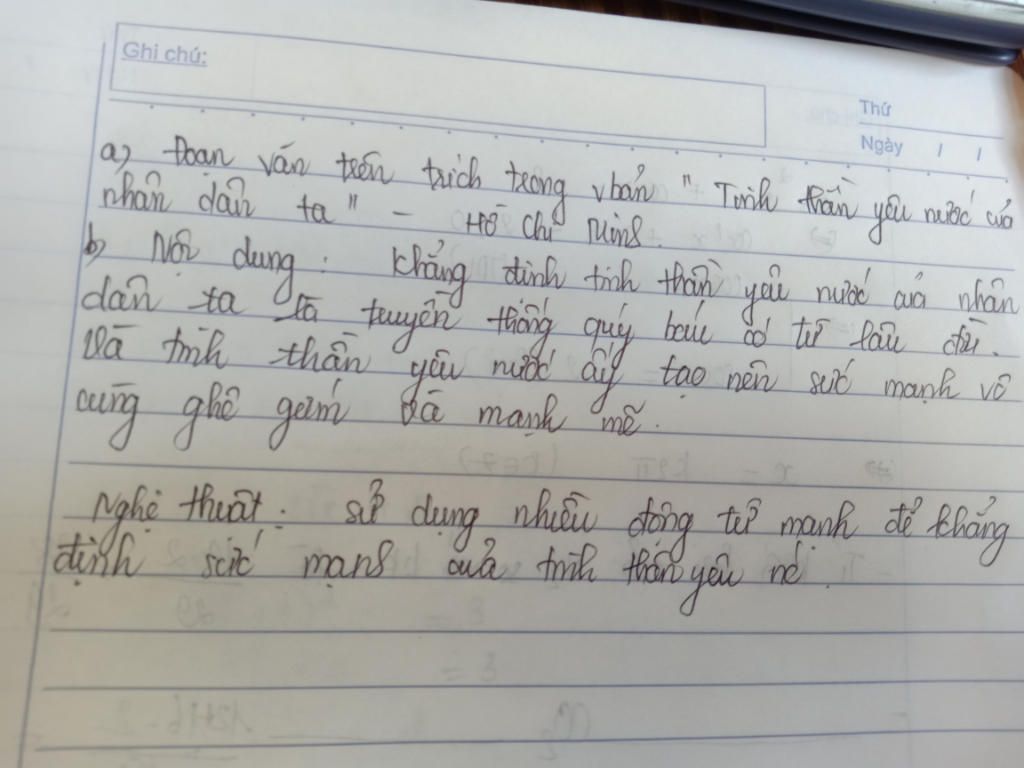 Ghi chú:
Thứ
Ngày / /
a) Đoạn văn trên trích trong vbản " Tinh thần yêu nước của
nhân dân ta " - Hồ Chí Minh.
b) Nội dung : khẳng định tinh thần yêu nước của nhân
dân ta là truyền thống quý báu có từ lâu đời.
Và tinh thần yêu nước ấy tạo nên sức mạnh vô
cùng ghê gớm và mạnh mẽ.
Nghệ thuật : sử dụng nhiều động từ mạnh để khẳng
định sức mạnh của tinh thần yêu nc.